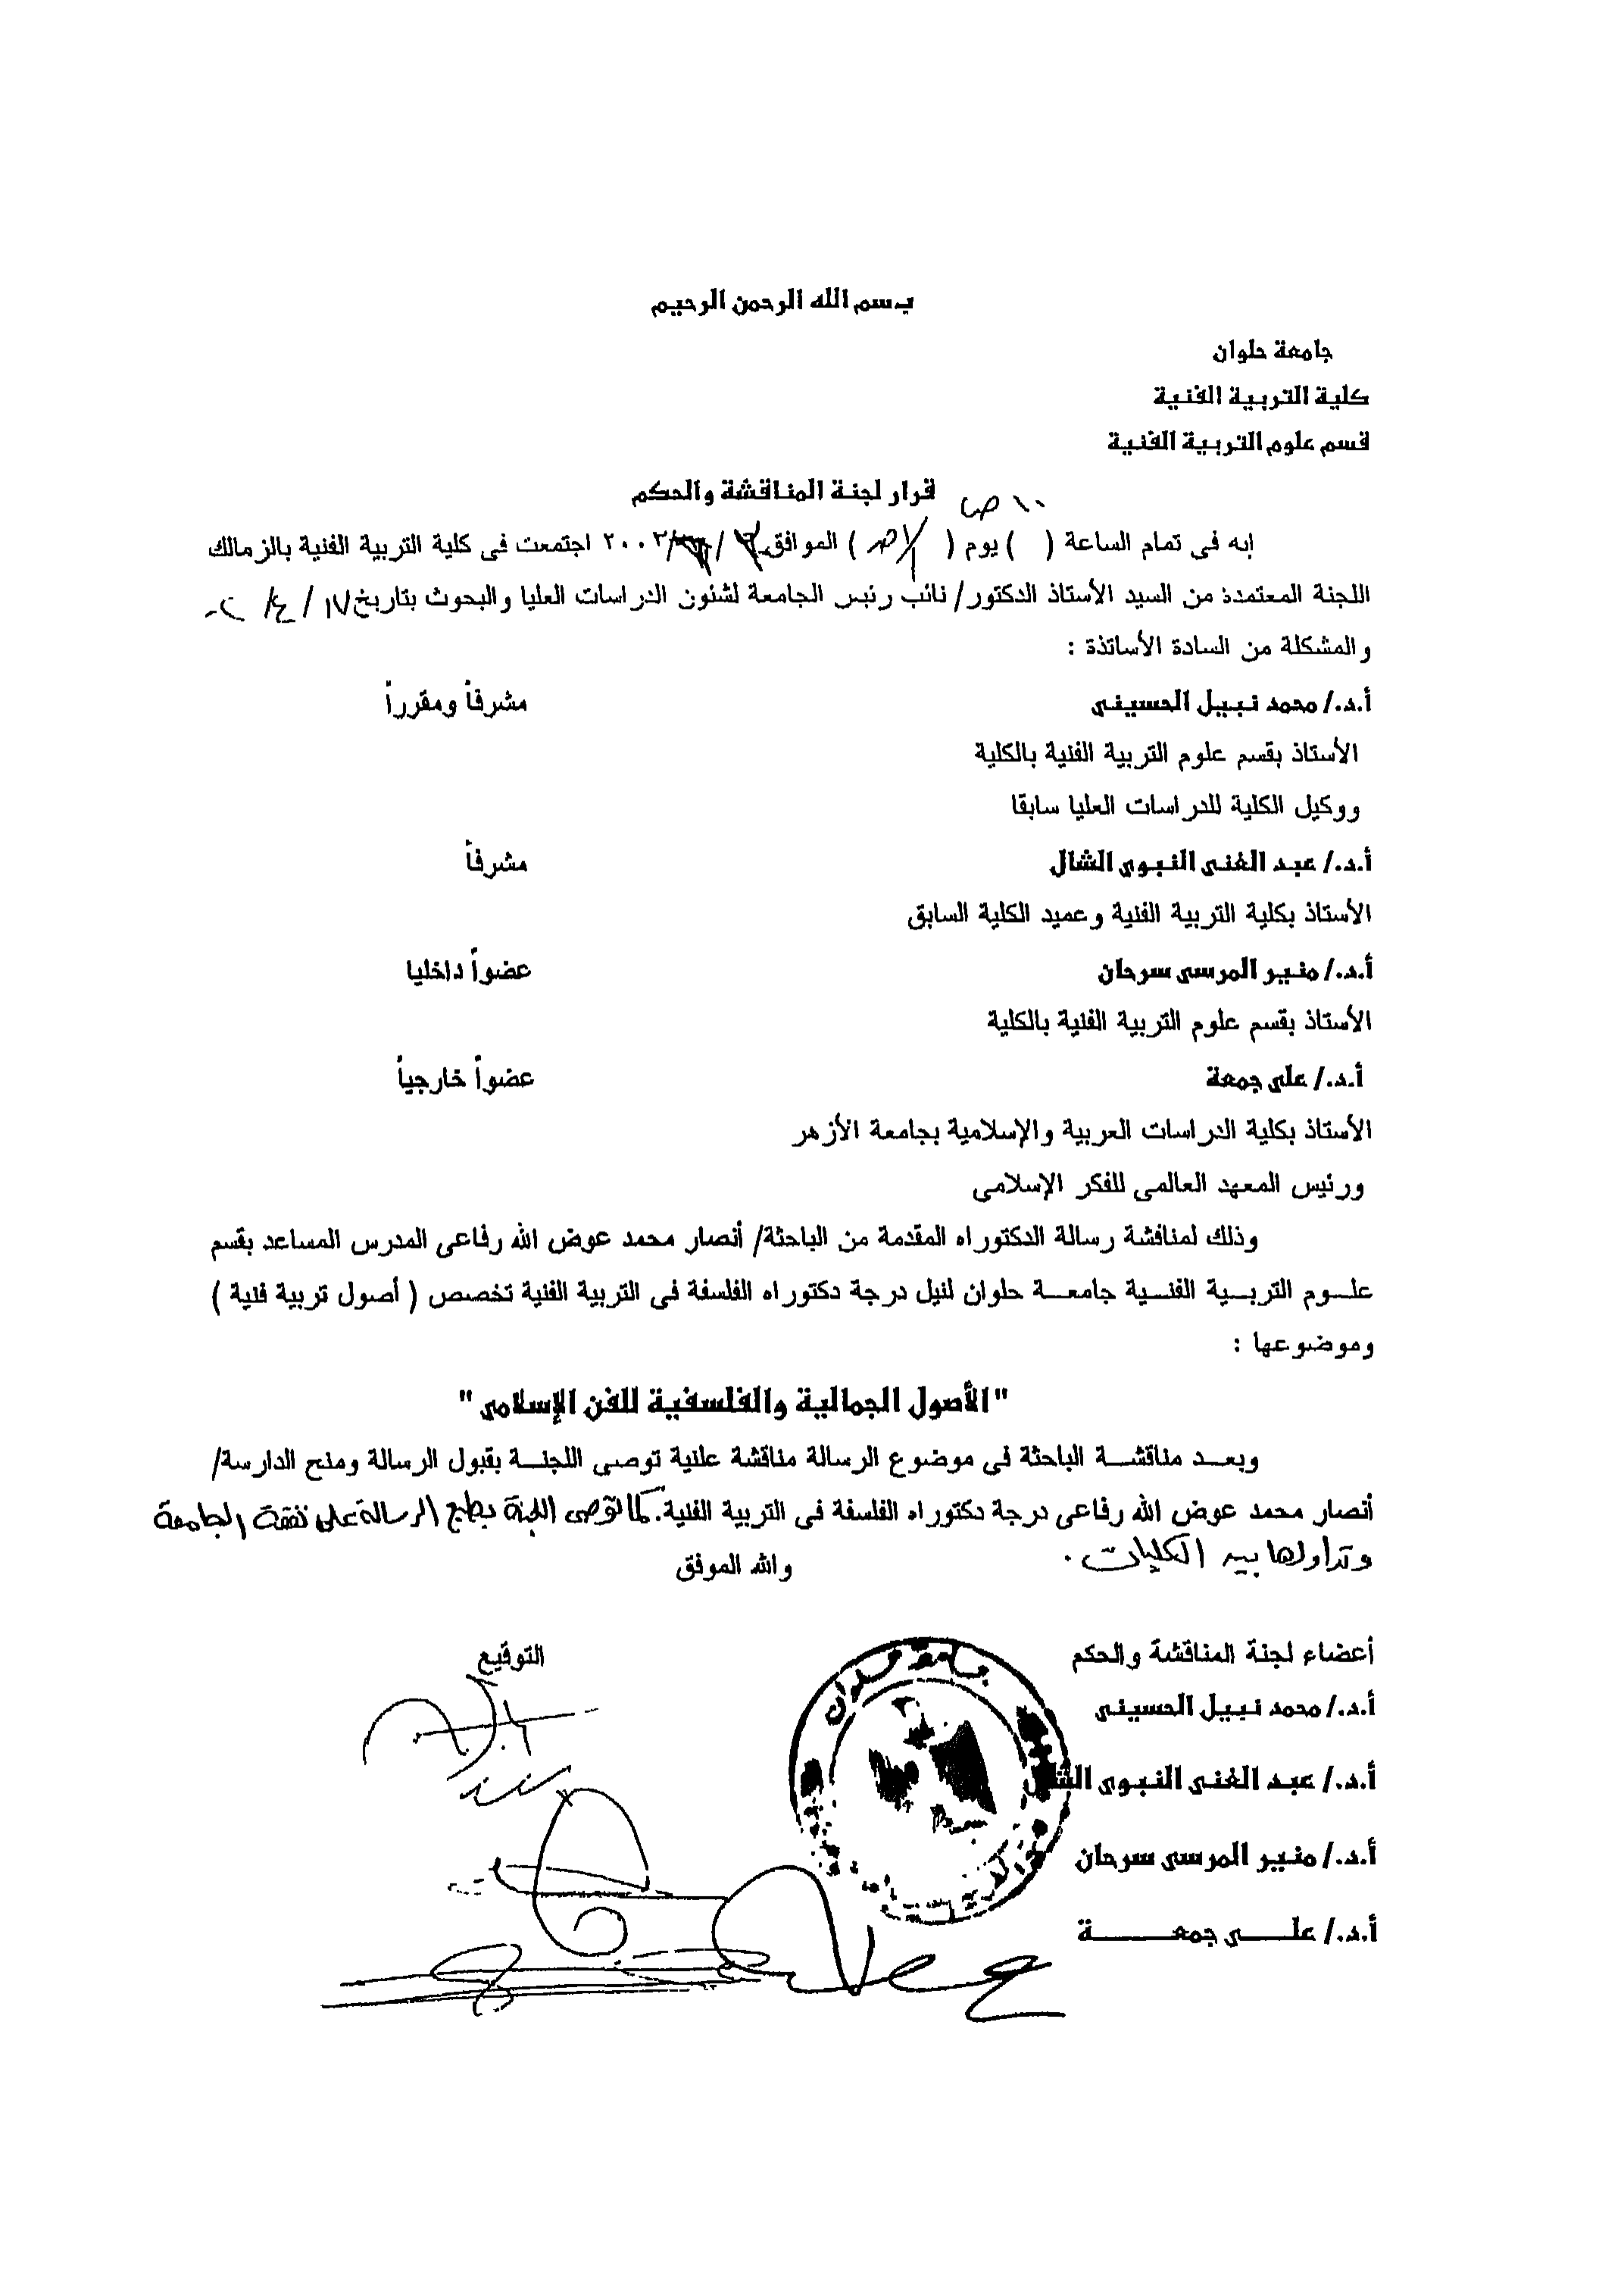 بسم الله الرحمن الرحيم
جامعة حلوان
كلية التربية الفنية
قسم علوم التربية الفنية
قرار لجنة المناقشة والحكم
١٠ ص
إنه فى تمام الساعة ( ) يوم ( ) الموافق / / ٢٠٠٢ اجتمعت فى كلية التربية الفنية بالزمالك
اللجنة المعتمدة من السيد الأستاذ الدكتور/ نائب رئيس الجامعة لشئون الدراسات العليا والبحوث بتاريخ ١٧ / ٤ /
والمشكلة من السادة الأساتذة :
أ.د./ محمد نبيل الحسينى مشرفاً ومقرراً
الأستاذ بقسم علوم التربية الفنية بالكلية
ووكيل الكلية للدراسات العليا سابقا
أ.د./ عبد الغنى النبوى الشال مشرفاً
الأستاذ بكلية التربية الفنية وعميد الكلية السابق
أ.د./ منير المرسى سرحان عضواً داخليا
الأستاذ بقسم علوم التربية الفنية بالكلية
أ.د./ على جمعة عضواً خارجياً
الأستاذ بكلية الدراسات العربية والإسلامية بجامعة الأزهر
ورئيس المعهد العالمى للفكر الإسلامى
وذلك لمناقشة رسالة الدكتوراه المقدمة من الباحثة/ أنصار محمد عوض الله رفاعى المدرس المساعد بقسم
علوم التربية الفنية جامعة حلوان لنيل درجة دكتوراه الفلسفة فى التربية الفنية تخصص ( أصول تربية فنية )
وموضوعها :
"الأصول الجمالية والفلسفية للفن الإسلامى"
وبعد مناقشة الباحثة فى موضوع الرسالة مناقشة علنية توصى اللجنة بقبول الرسالة ومنح الدارسة/
أنصار محمد عوض الله رفاعى درجة دكتوراه الفلسفة فى التربية الفنية. كما توصى اللجنة بطبع الرسالة على نفقة الجامعة
وتداولها بين الكليات .
والله الموفق
أعضاء لجنة المناقشة والحكم التوقيع
أ.د./ محمد نبيل الحسينى
أ.د./ عبد الغنى النبوى الشال
أ.د./ منير المرسى سرحان
أ.د./ على جمعة
جامعة حلوان